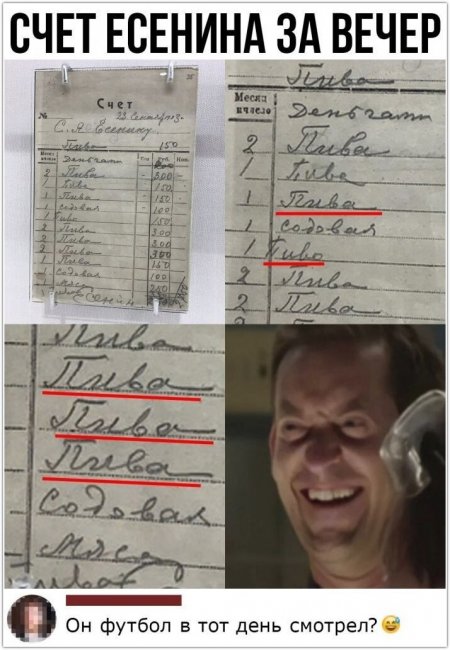 СЧЕТ ЕСЕНИНА ЗА ВЕЧЕР
Счет
С.А Есенину
Пива 150
Деньгами
2 Пива 300
1 Пива 150
1 Пива 150
1 содовая 100
1 Пиво 150
2 Пива 300
2 Пива 300
2 Пива 300
1 Пива 150
1 содовая 100
1 Мясо
Пива
Месяц
и число
Деньгами
2 Пива
1 Пива
1 Пива
1 содовая
1 Пиво
2 Пива
2 Пива
Пива
Пива
Пива
Пива
Содовая
Мясо
Он футбол в тот день смотрел?😅